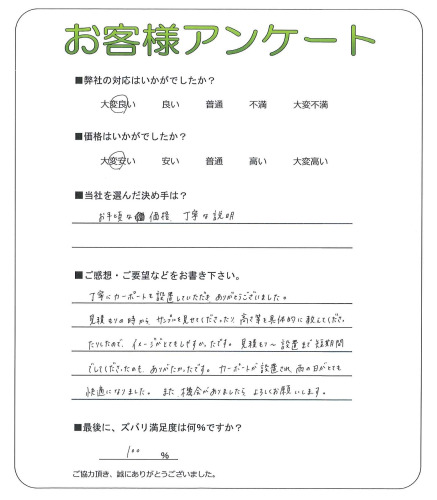 お客様アンケート
■弊社の対応はいかがでしたか？
大変良い 良い 普通 不満 大変不満
■価格はいかがでしたか？
大変安い 安い 普通 高い 大変高い
■当社を選んだ決め手は？
お手頃な価格 丁寧な説明
■ご感想・ご要望などをお書き下さい。
丁寧にカーポートを設置していただき ありがとうございました。
見積もりの時から、サンプルを見せてくださったり、高さ等を具体的に教えてくださっ
たりしたので、イメージがとてもしやすかったです。見積もり～設置まで短期間
でしてくださったのも、ありがたかったです。カーポートが設置され、雨の日がとても
快適になりました。また、機会がありましたら、よろしくお願いします。
■最後に、ズバリ満足度は何%ですか？
100 %
ご協力頂き、誠にありがとうございました。